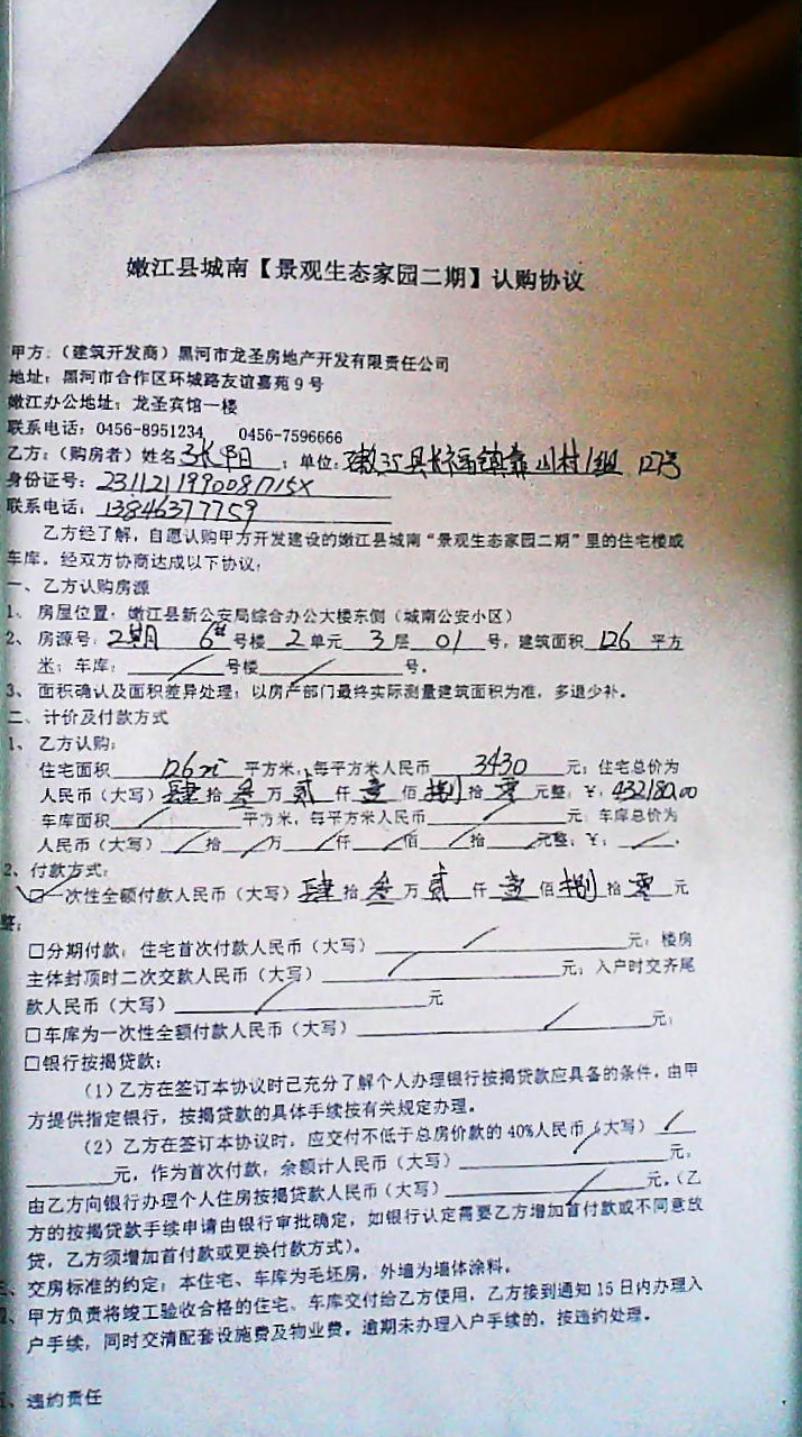 嫩江县城南【景观生态家园二期】认购协议
甲方：（建筑开发商）黑河市龙圣房地产开发有限责任公司
地址：黑河市合作区环城路友谊嘉苑9号
嫩江办公地址：龙圣宾馆一楼
联系电话：0456-8951234 0456-7596666
乙方：（购房者）姓名 张阳 ；单位：嫩江县长福镇靠山村1组 127号
身份证号：23112119900817115X
联系电话：13846377759
乙方经了解，自愿认购甲方开发建设的嫩江县城南“景观生态家园二期”里的住宅楼或
车库。经双方协商达成以下协议：
一、乙方认购房源
1、房屋位置：嫩江县新公安局综合办公大楼东侧（城南公安小区）
2、房源号：2期 6# 号楼 2 单元 3 层 01 号，建筑面积 126 平方
米；车库：／号楼／号。
3、面积确认及面积差异处理：以房产部门最终实际测量建筑面积为准，多退少补。
二、计价及付款方式
1、乙方认购：
住宅面积 126㎡ 平方米，每平方米人民币 3430 元；住宅总价为
人民币（大写）肆拾叁万贰仟壹佰捌拾零元整，￥：432180.00
车库面积／平方米，每平方米人民币／元；车库总价为
人民币（大写）／拾／万／仟／佰／拾／元整，￥：／。
2、付款方式：
☑一次性全额付款人民币（大写）肆拾叁万贰仟壹佰捌拾零元
整；
□分期付款：住宅首次付款人民币（大写）／元；楼房
主体封顶时二次交款人民币（大写）／元；入户时交齐尾
款人民币（大写）／元
□车库为一次性全额付款人民币（大写）／元；
□银行按揭贷款：
（1）乙方在签订本协议时已充分了解个人办理银行按揭贷款应具备的条件。由甲
方提供指定银行，按揭贷款的具体手续按有关规定办理。
（2）乙方在签订本协议时，应交付不低于总房价款的40%人民币（大写）／
元，作为首次付款，余额计人民币（大写）／元，
由乙方向银行办理个人住房按揭贷款人民币（大写）／元。（乙
方的按揭贷款手续申请由银行审批确定，如银行认定需要乙方增加首付款或不同意放
贷，乙方须增加首付款或更换付款方式）。
三、交房标准的约定：本住宅、车库为毛坯房，外墙为墙体涂料。
四、甲方负责将竣工验收合格的住宅、车库交付给乙方使用，乙方接到通知15日内办理入
户手续，同时交清配套设施费及物业费。逾期未办理入户手续的，按违约处理。
五、违约责任